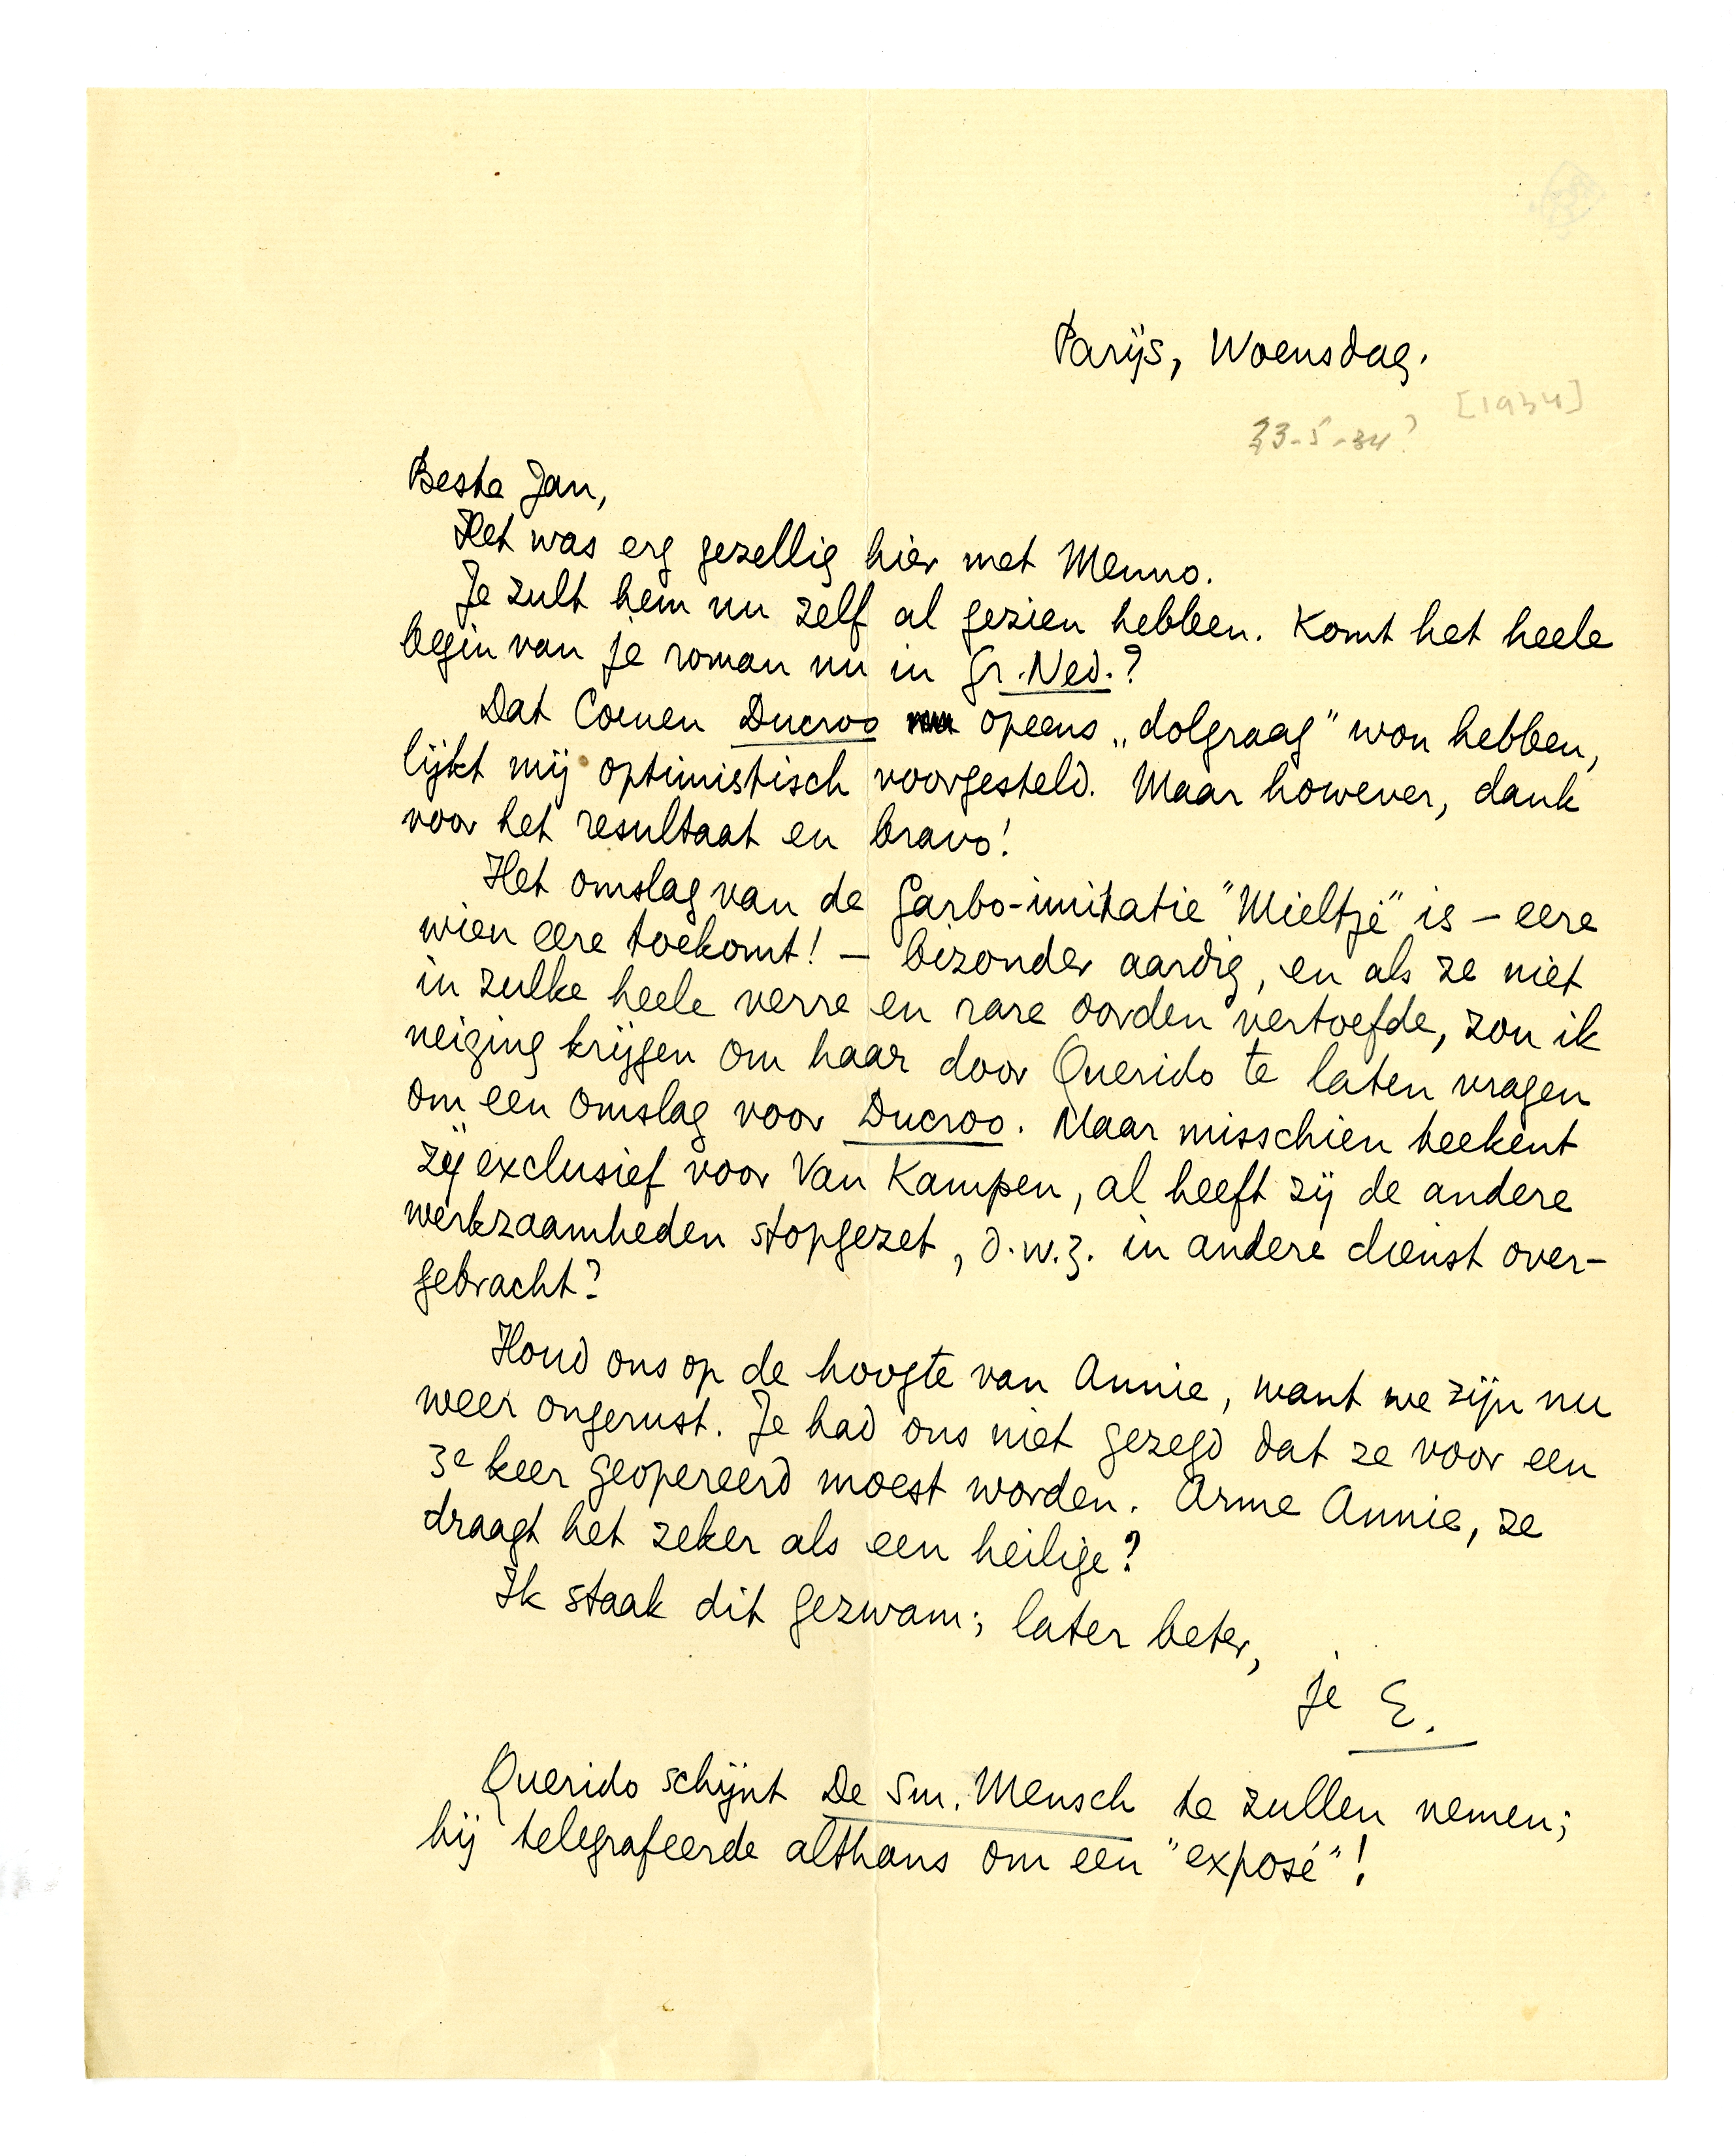 Parijs, Woensdag.
[1934]
23-5-34?
Beste Jan,
Het was erg gezellig hier met Menno.
Je zult hem nu zelf al gezien hebben. Komt het heele
begin van je roman nu in Gr. Ned.?
Dat Coenen Ducroo opeens „dolgraag” wou hebben,
lijkt mij optimistisch voorgesteld. Maar however, dank
voor het resultaat en bravo!
Het omslag van de Garbo-imitatie "Mieltje" is – eere
wien eere toekomt! – bizonder aardig, en als ze niet
in zulke heele verre en rare oorden vertoefde, zou ik
neiging krijgen om haar door Querido te laten vragen
om een omslag voor Ducroo. Maar misschien teekent
zij exclusief voor Van Kampen, al heeft zij de andere
werkzaamheden stopgezet, d.w.z. in andere dienst over-
gebracht?
Houd ons op de hoogte van Annie, want we zijn nu
weer ongerust. Je had ons niet gezegd dat ze voor een
3e keer geopereerd moest worden. Arme Annie, ze
draagt het zeker als een heilige?
Ik staak dit gezwam; later beter,
je E.
Querido schijnt De Sm. Mensch te zullen nemen;
hij telegrafeerde althans om een "exposé"!